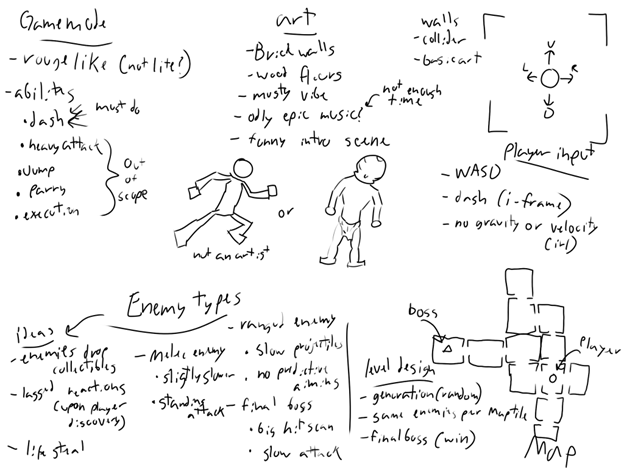 Gamemode
- rougelike (not lite?)
- abilitys
• dash
must do
• heavy attack
• Jump
• parry
• execution
out of scope
art
- Brick walls
- wood floors
- musty vibe
- odly epic music?
not enough time
- funny intro scene
or
not an artist
walls
- collider
- basic art
U
L
R
D
Player input
- WASD
- dash (i-frame)
- no gravity or velocity
(irl)
Enemy types
ideas
- enemies drop
collectibles
- lagged reactions
(upon player
discovery)
- life steal
- melee enemy
• slightly slower
• standing
attack
- ranged enemy
• slow projectiles
• no predictive
aiming
- final boss
• big hit scan
• slow attack
level design
- generation (random)
- same enemies per Map tile
- final boss (win)
boss
player
Map